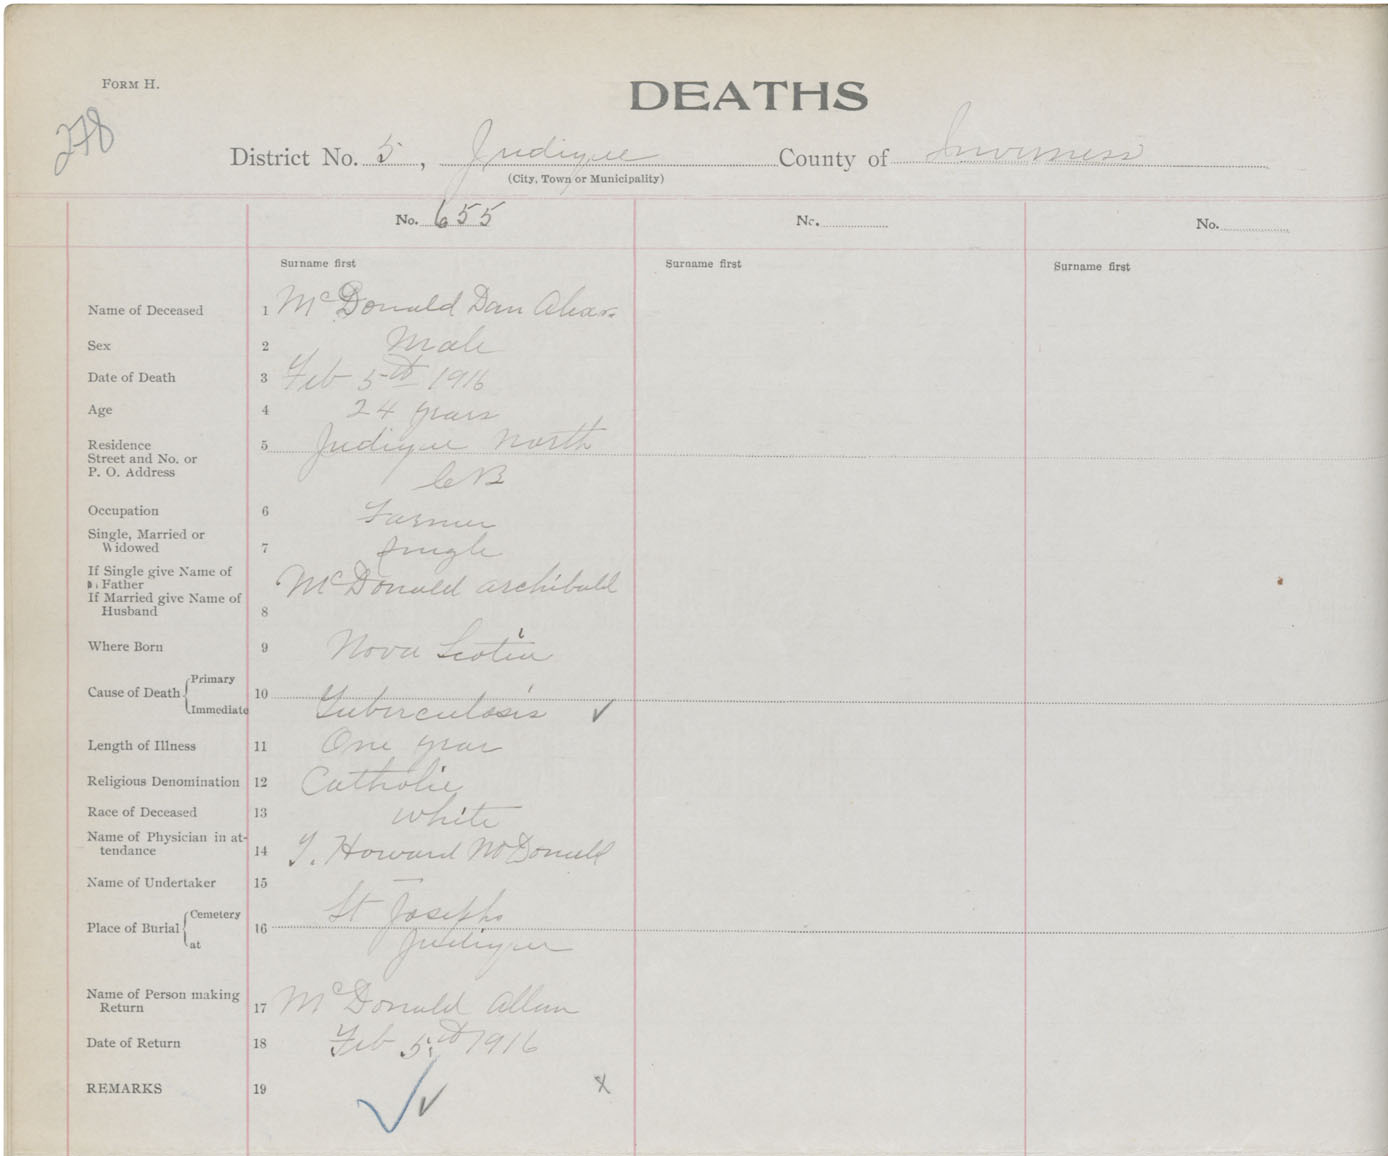 FORM H.
DEATHS
278
District No. 5, Judique County of Inverness
(City, Town or Municipality)
No. 655 No. No.
Surname first Surname first Surname first
Name of Deceased 1 McDonald Dan Alex.
Sex 2 Male
Date of Death 3 Feb 5th 1916
Age 4 24 years
Residence 5 Judique North
Street and No. or
P. O. Address C B
Occupation 6 Farmer
Single, Married or
Widowed 7 Single
If Single give Name of
Father McDonald Archibald
If Married give Name of
Husband 8
Where Born 9 Nova Scotia
Cause of Death Primary 10
Immediate Tuberculosis ✓
Length of Illness 11 One year
Religious Denomination 12 Catholic
Race of Deceased 13 White
Name of Physician in at-
tendance 14 J. Howard McDonald
Name of Undertaker 15 —
Place of Burial Cemetery 16 St Josephs
at Judique
Name of Person making
Return 17 McDonald Allan
Date of Return 18 Feb 5th 1916
REMARKS 19 ✓ ✓ x